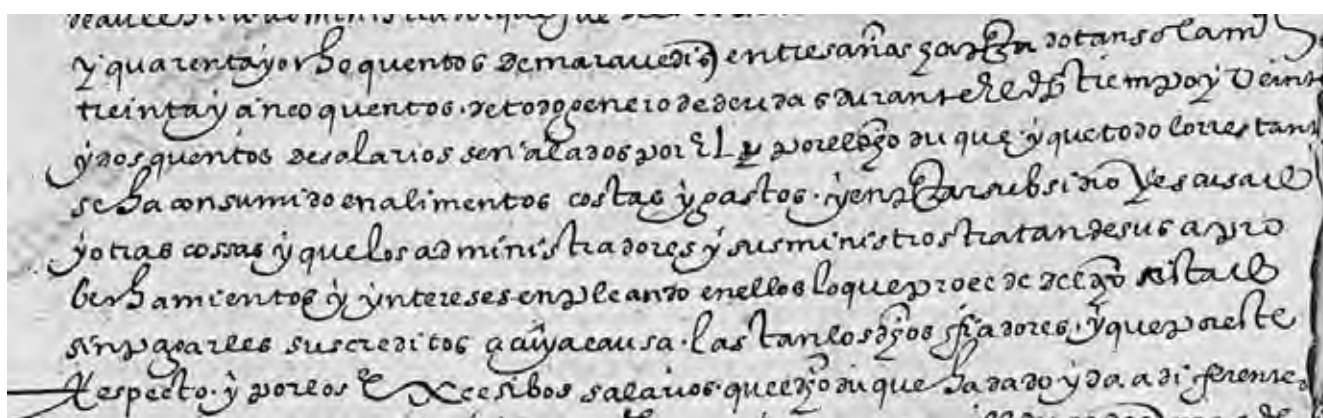 y quarenta y ocho quentos de maravedis en tres años pagando tan solam
treinta y cinco quentos de todo genero de deudas durante el dho tiempo y veinte
y dos quentos de salarios señalados por el y por el dho duque y que todo lo rrestan
se ha consumido en alimentos costas y gastos y en pagar subsidio y escusado
y otras cossas y que los administradores y sus ministros tratan de sus apro
bechamientos y yntereses enpleando en ellos lo que procede del dho estado
sin pagarles sus creditos a cuya causa lastan los dhos fiadores y que por este
respecto y por los excesibos salarios que el dho duque ha dado y da a diferentes